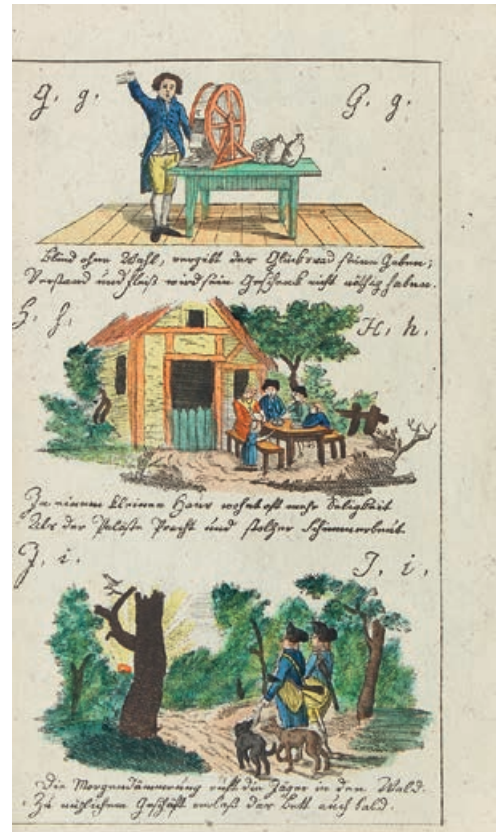 G. g. G. g.
Blind ohne Wahl, vergibt das Glücksrad seine Gaben;
Verstand und Fleiß wird sein Geschenk nicht nöthig haben.
H. h. H. h.
In einem kleinen Haus wohnt oft mehr Seligkeit
Als der Paläste Pracht und stolzer
J. i. J. i.
Die Morgendämmerung ruft die Jäger in den Wald.
Zu nützlichem Geschäft verlaß das Bett auch bald.